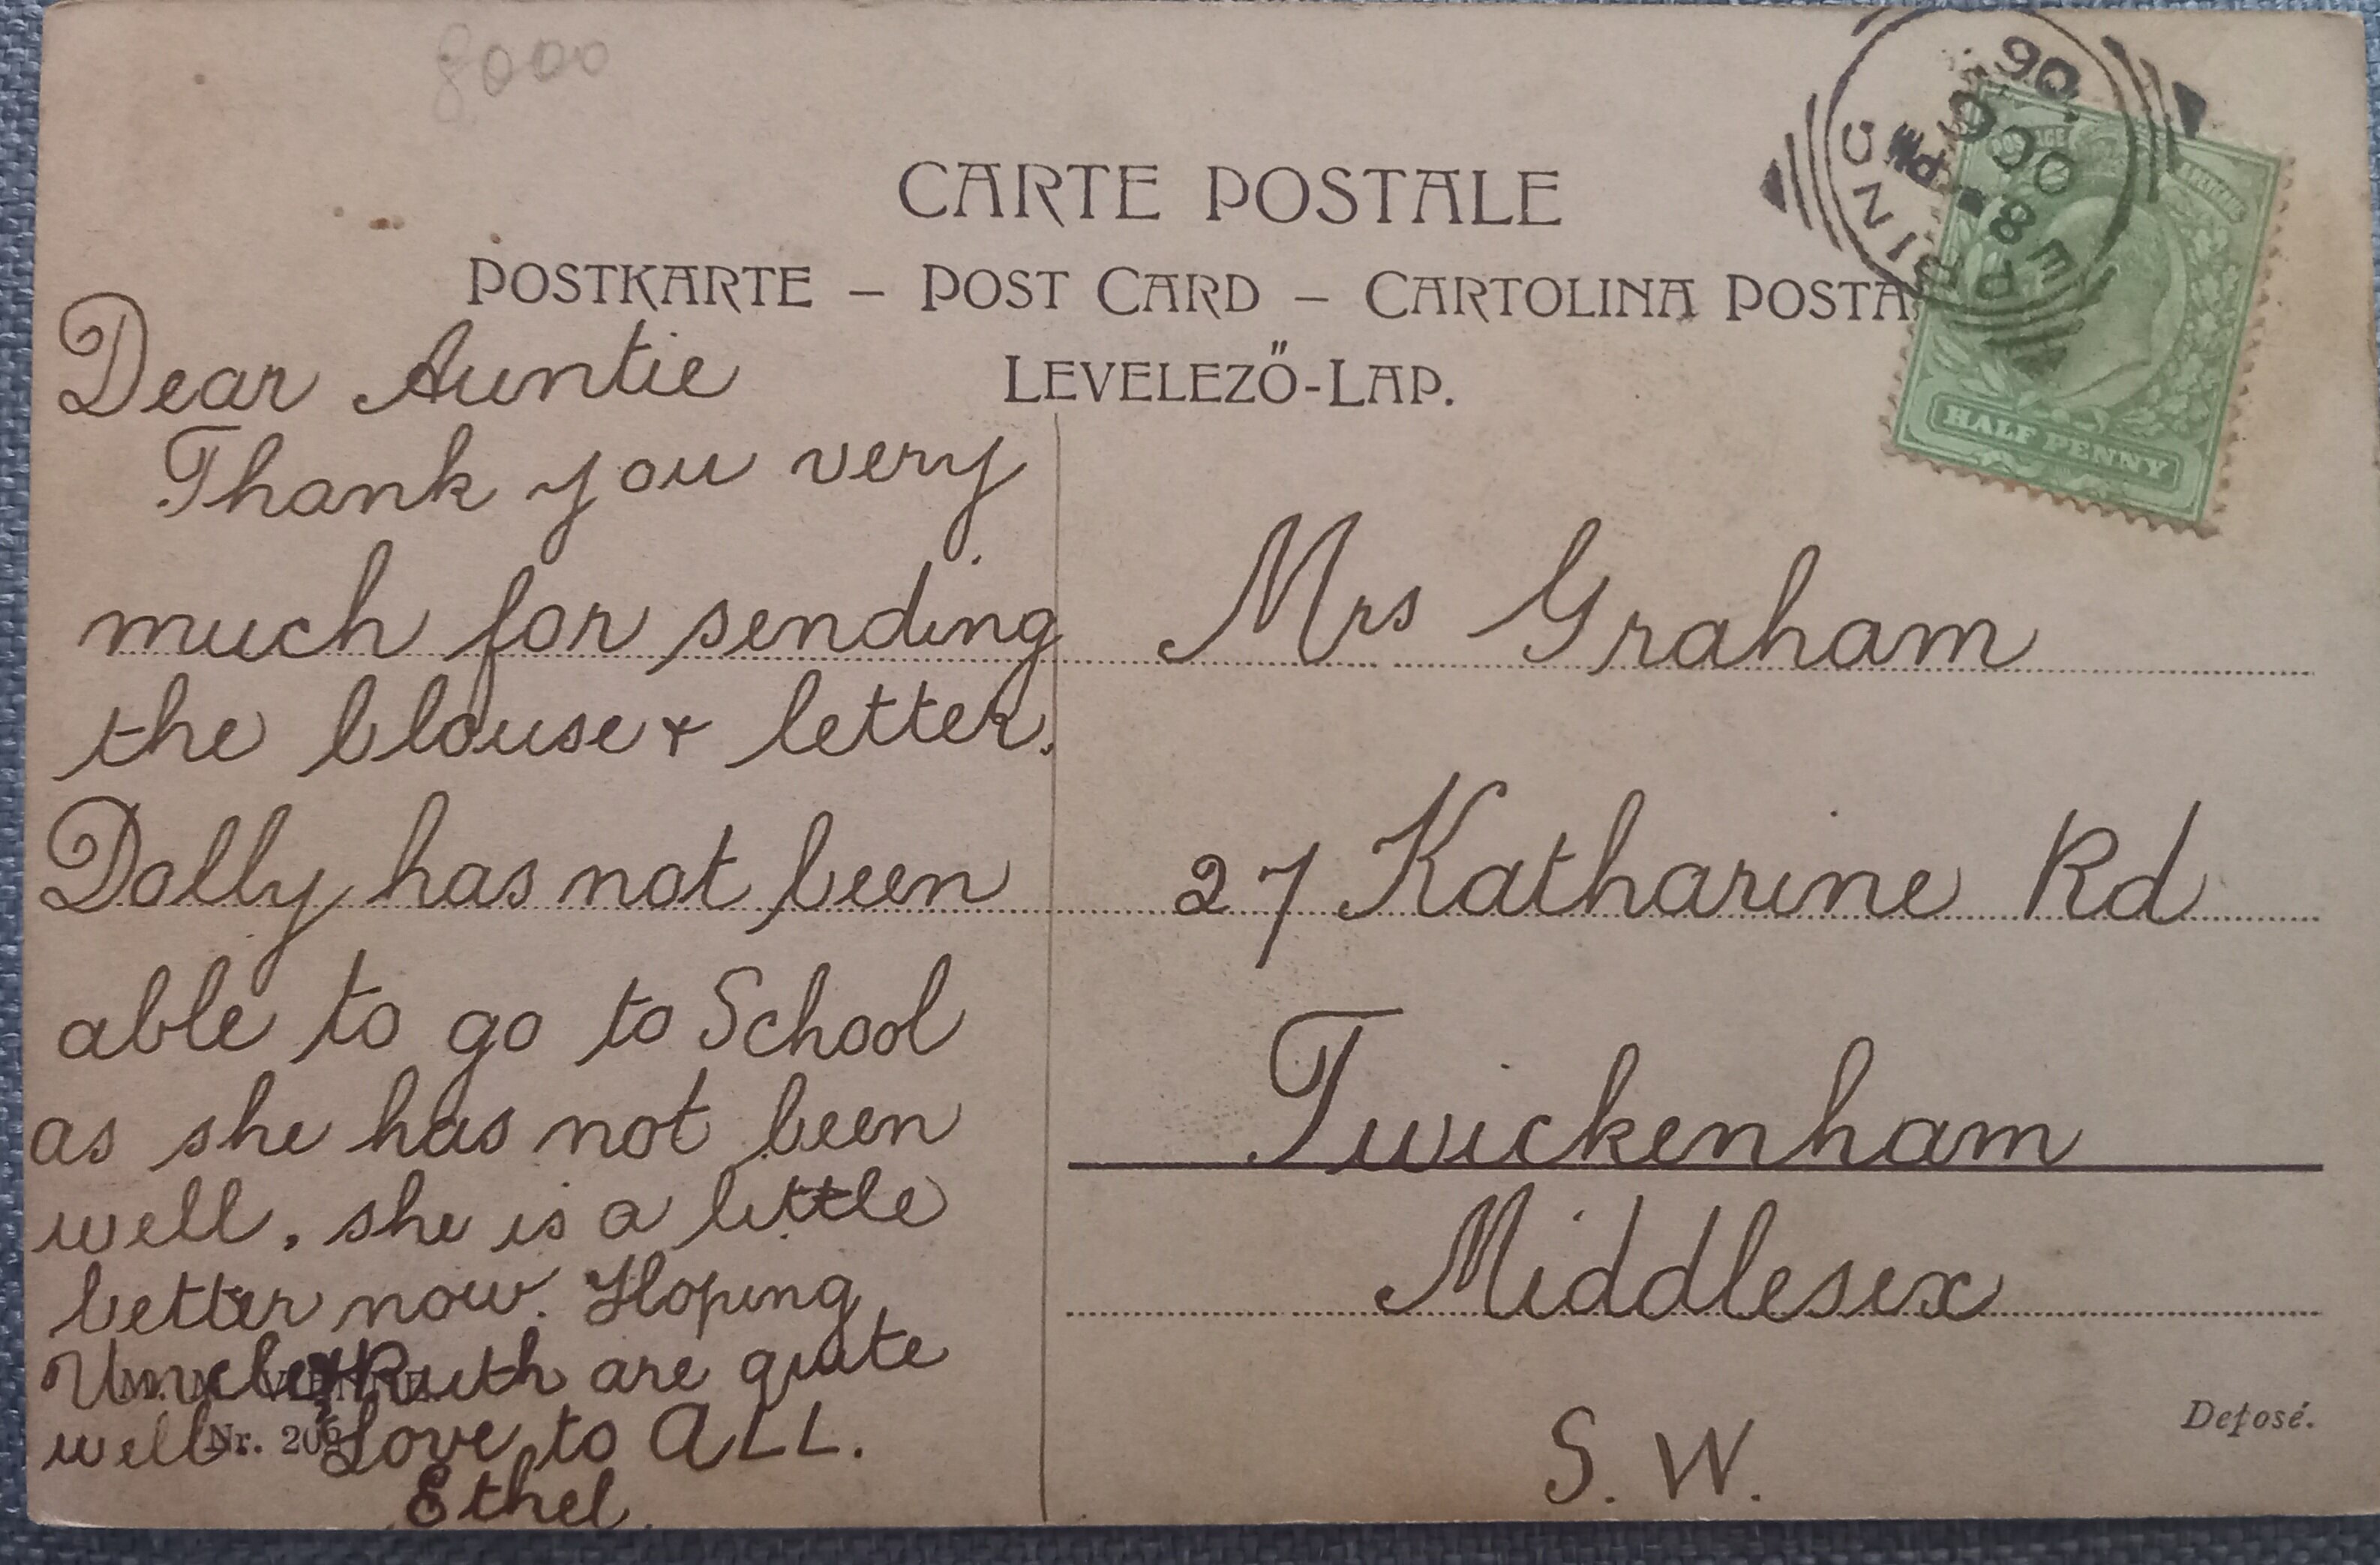 8000
CARTE POSTALE
POSTKARTE – POST CARD – CARTOLINA POSTA
LEVELEZŐ-LAP.
Dear Auntie
Thank you very
much for sending
the blouse & letter.
Dolly has not been
able to go to School
as she has not been
well. she is a little
better now. Hoping
Uncle & Ruth are quite
well Love to ALL.
Ethel.
Nr. 206
Mrs Graham
27 Katharine Rd
Twickenham
Middlesex
S. W.
Deposé.
HALF PENNY
POSTAGE
8 PM
OC 8
06